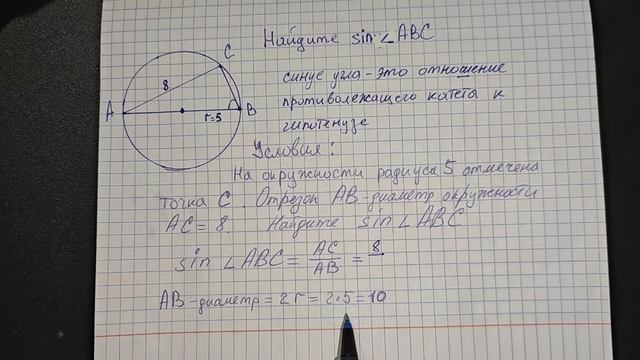 Найдите sin ∠ABC
C
8
A
B
r=5
синус угла - это отношение
противолежащего катета к
гипотенузе
Условия:
На окружности радиуса 5 отмечена
точка C. Отрезок AB-диаметр окружности
AC = 8. Найдите sin ∠ABC
sin ∠ABC = AC/AB = 8
AB - диаметр = 2r = 2·5 = 10